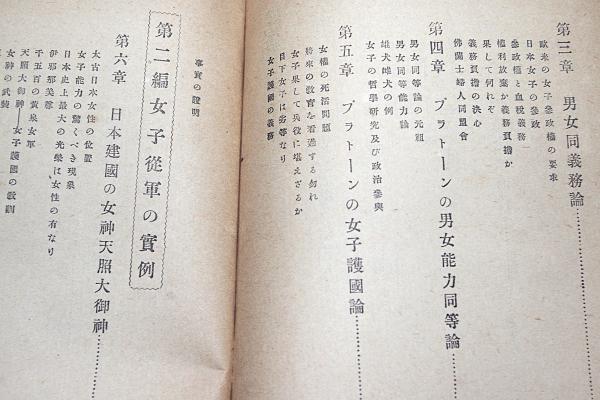 第三章　男女同義務論………
歐米の女子參政權の要求
日本女子の參政
參政權と血稅義務
權利放棄か義務負擔か
果して何れぞ
義務負擔の決心
佛蘭士婦人同盟會
第四章　プラトーンの男女能力同等論………
男女同等論の元祖
男女同等能力論
雄犬雌犬の例
女子の哲學研究及び政治參與
第五章　プラトーンの女子護國論………
女權の死活問題
將來の敎育を看過する勿れ
女子果して兵役に堪えざるか
目下女子は劣等なり
女子護國の義務
事實の證明
第二編　女子從軍の實例
第六章　日本建國の女神天照大御神………
太古日本女性の位置
女子能力の驚くべき現象
日本史上最大の光榮は女性の有なり
伊邪那美尊
千五百の黃泉女軍
天照大御神——女子護國の敎訓
女神の武裝